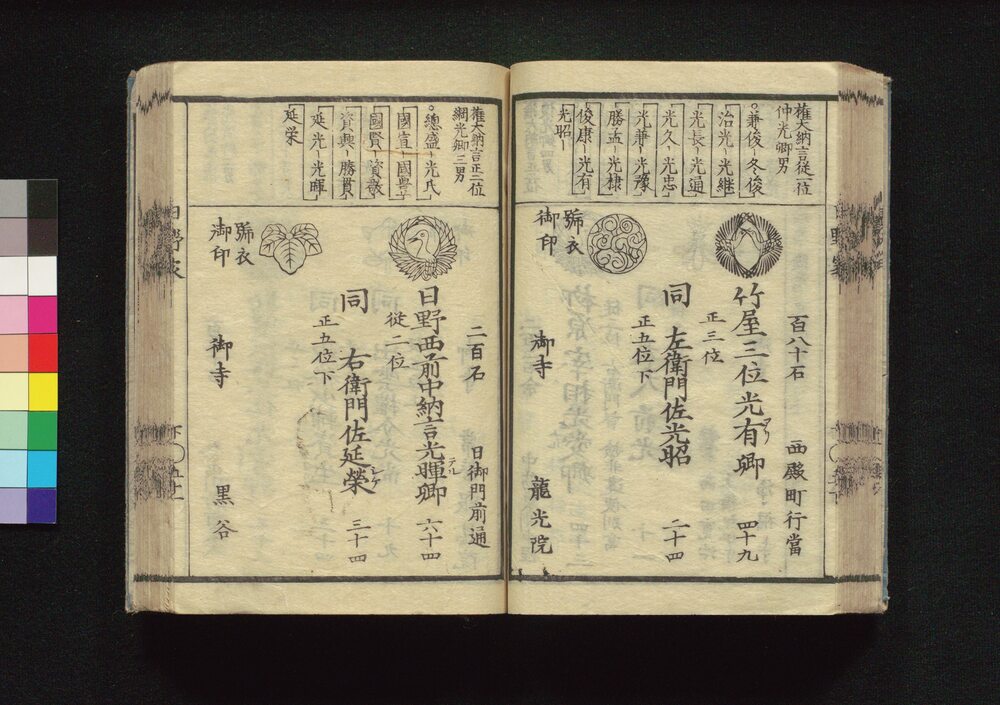 権大納言従一位
仲光卿男
兼俊 冬俊
治光 光継
光長 光通
光久 光忠
光兼 光豫
勝孟 光棣
俊康 光有
光昭
百八十石
西殿町行當
竹屋三位光有卿
四十九
正三位
同
左衛門佐光昭
二十四
正五位下
號衣
御印
御寺
龍光院
権大納言正二位
綱光卿三男
總盛 光氏
國宣 國豊
國賢 資敬
資興 勝貫
延光 光暉
延栄
二百石
日御門前通
日野西前中納言光暉卿
テル
六十四
従二位
同
右衛門佐延榮
三十四
正五位下
號衣
御印
御寺
黒谷
日野家